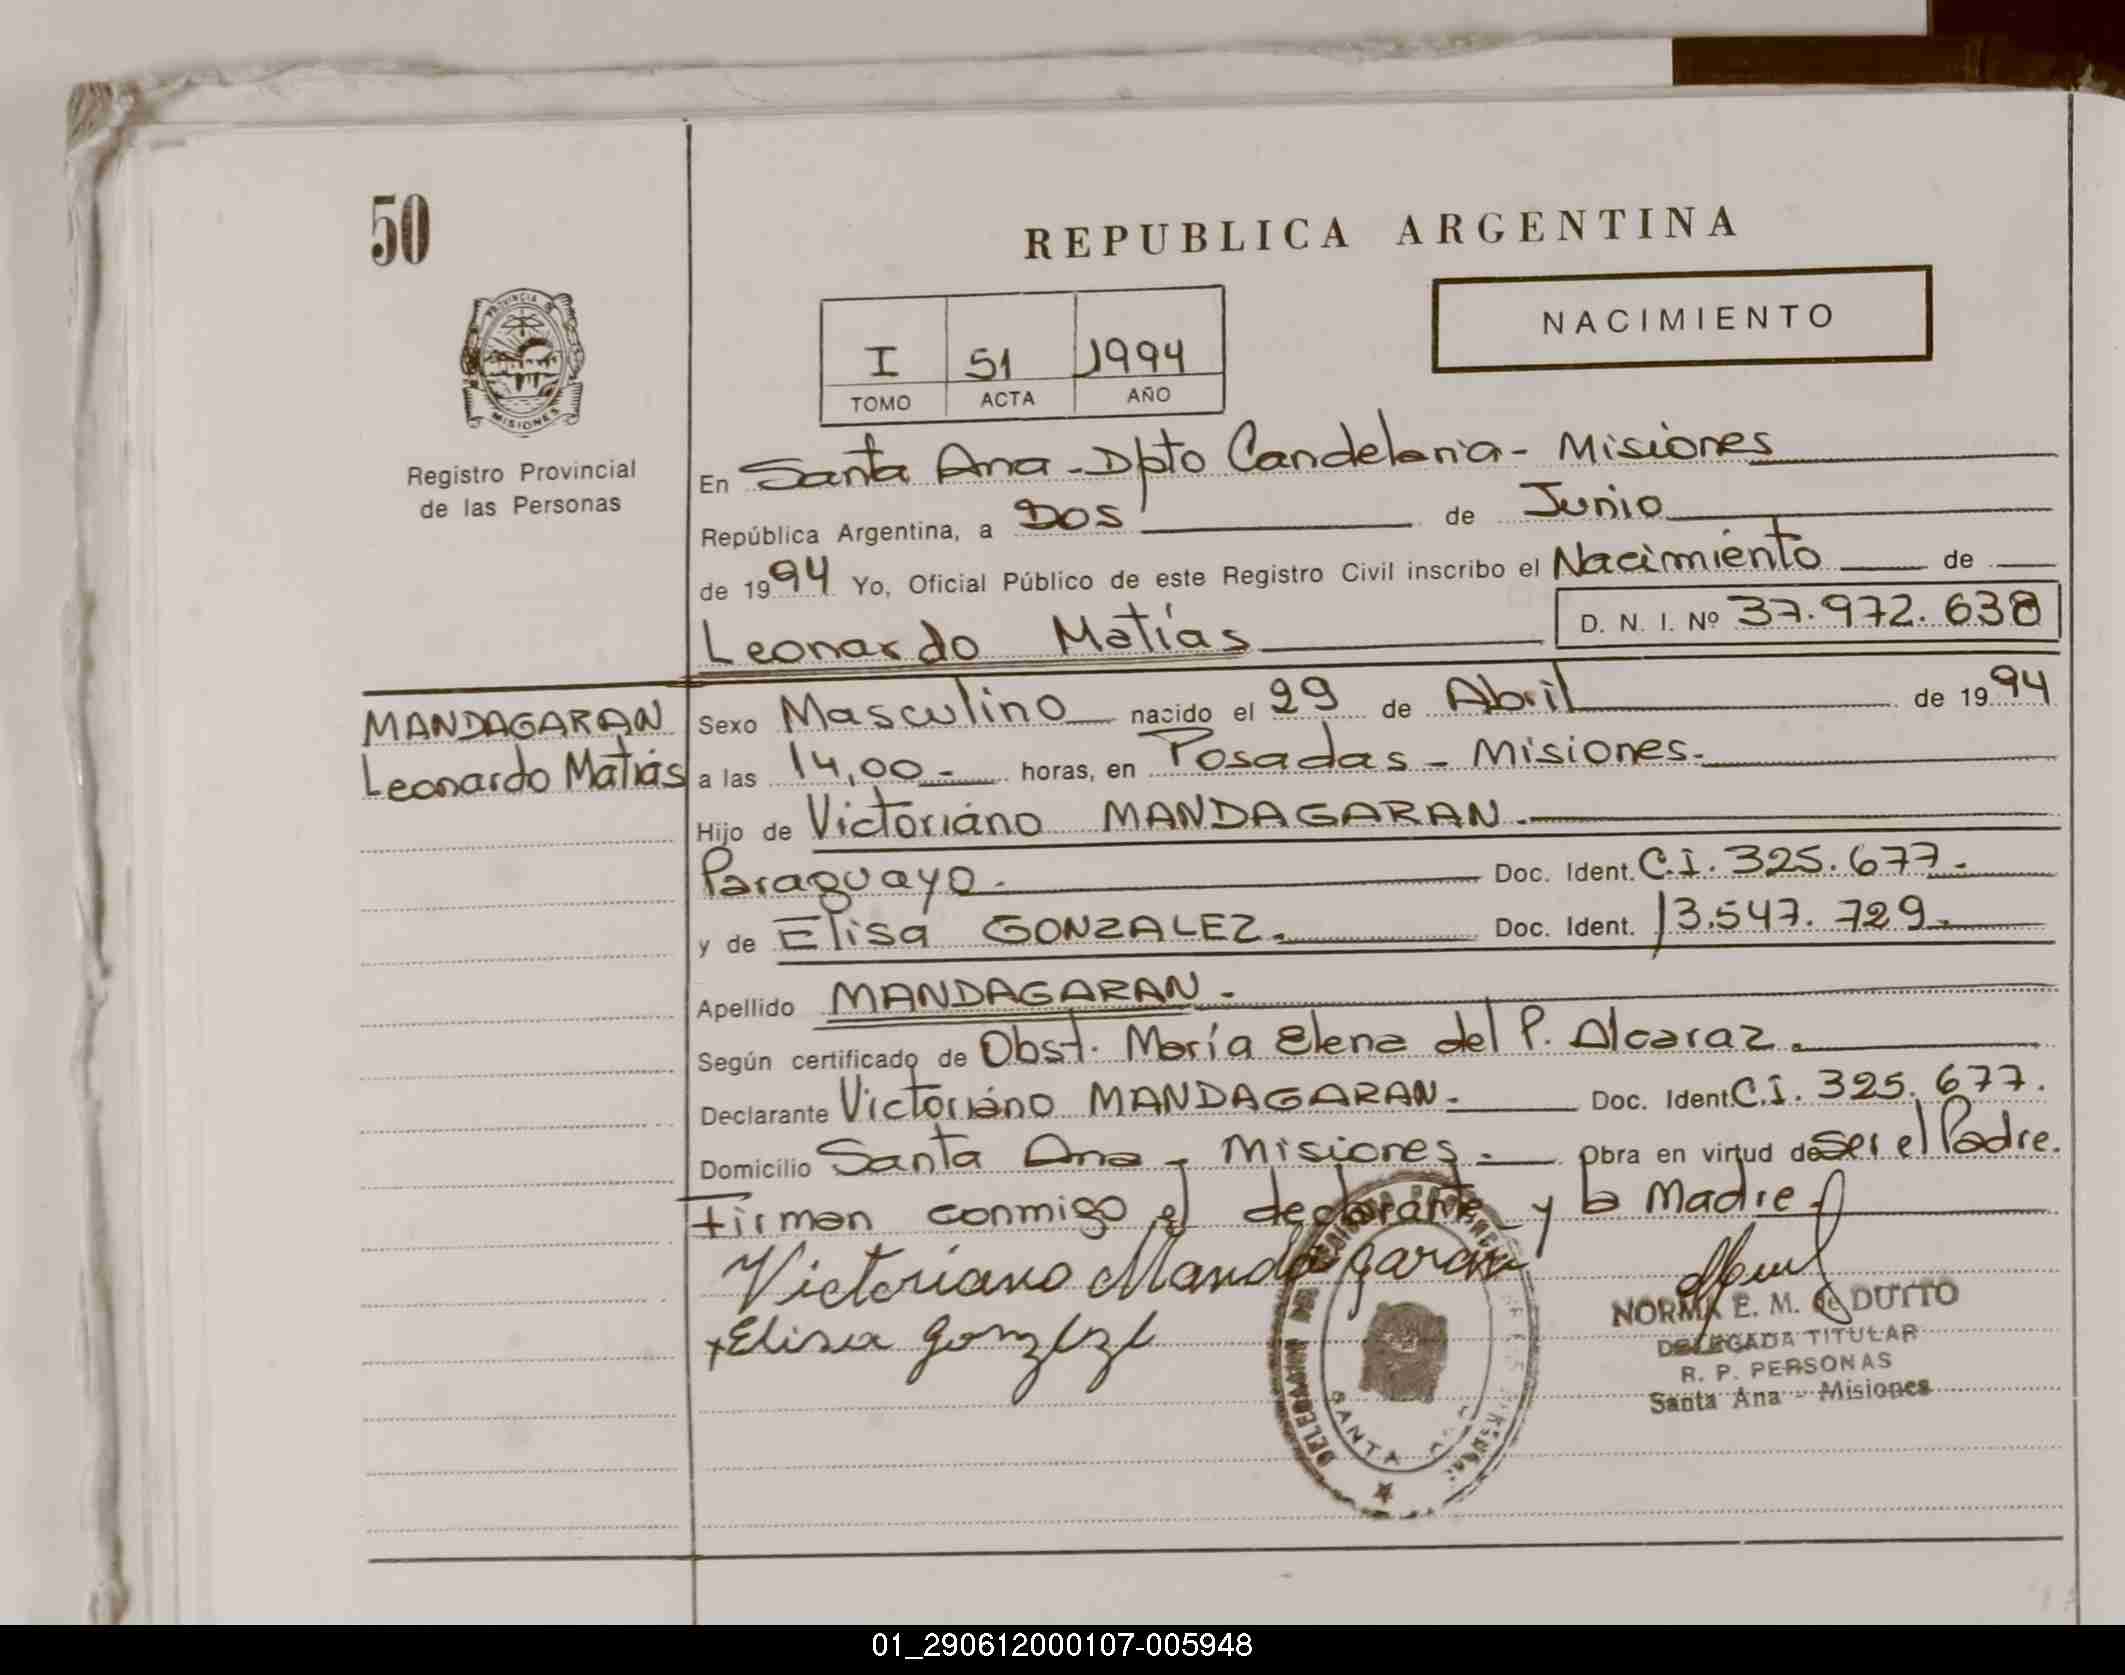 50
REPUBLICA ARGENTINA
NACIMIENTO
PROVINCIA DE
MISIONES
I 51 1994
TOMO ACTA AÑO
Registro Provincial
de las Personas
En Santa Ana - Dpto Candelaria - Misiones
República Argentina, a Dos de Junio
de 1994 Yo, Oficial Público de este Registro Civil inscribo el Nacimiento de
Leonardo Matías D. N. I. Nº 37.972.638
MANDAGARAN
Leonardo Matías
Sexo Masculino nacido el 29 de Abril de 1994
a las 14,00 - horas, en Posadas - Misiones.
Hijo de Victoriano MANDAGARAN.
Paraguayo. Doc. Ident. C.I. 325.677.
y de Elisa GONZALEZ. Doc. Ident. 13.547.729.
Apellido MANDAGARAN.
Según certificado de Obst. María Elena del P. Alcaraz.
Declarante Victoriano MANDAGARAN. Doc. Ident. C.I. 325.677.
Domicilio Santa Ana - Misiones. Obra en virtud de Ser el Padre.
Firman conmigo el declarante y la Madre.
Victoriano Mandagaran
Elisa
NORMA E. M. de DUTTO
DELEGADA TITULAR
R. P. PERSONAS
Santa Ana - Misiones
DELEGACION
SANTA
01_290612000107-005948